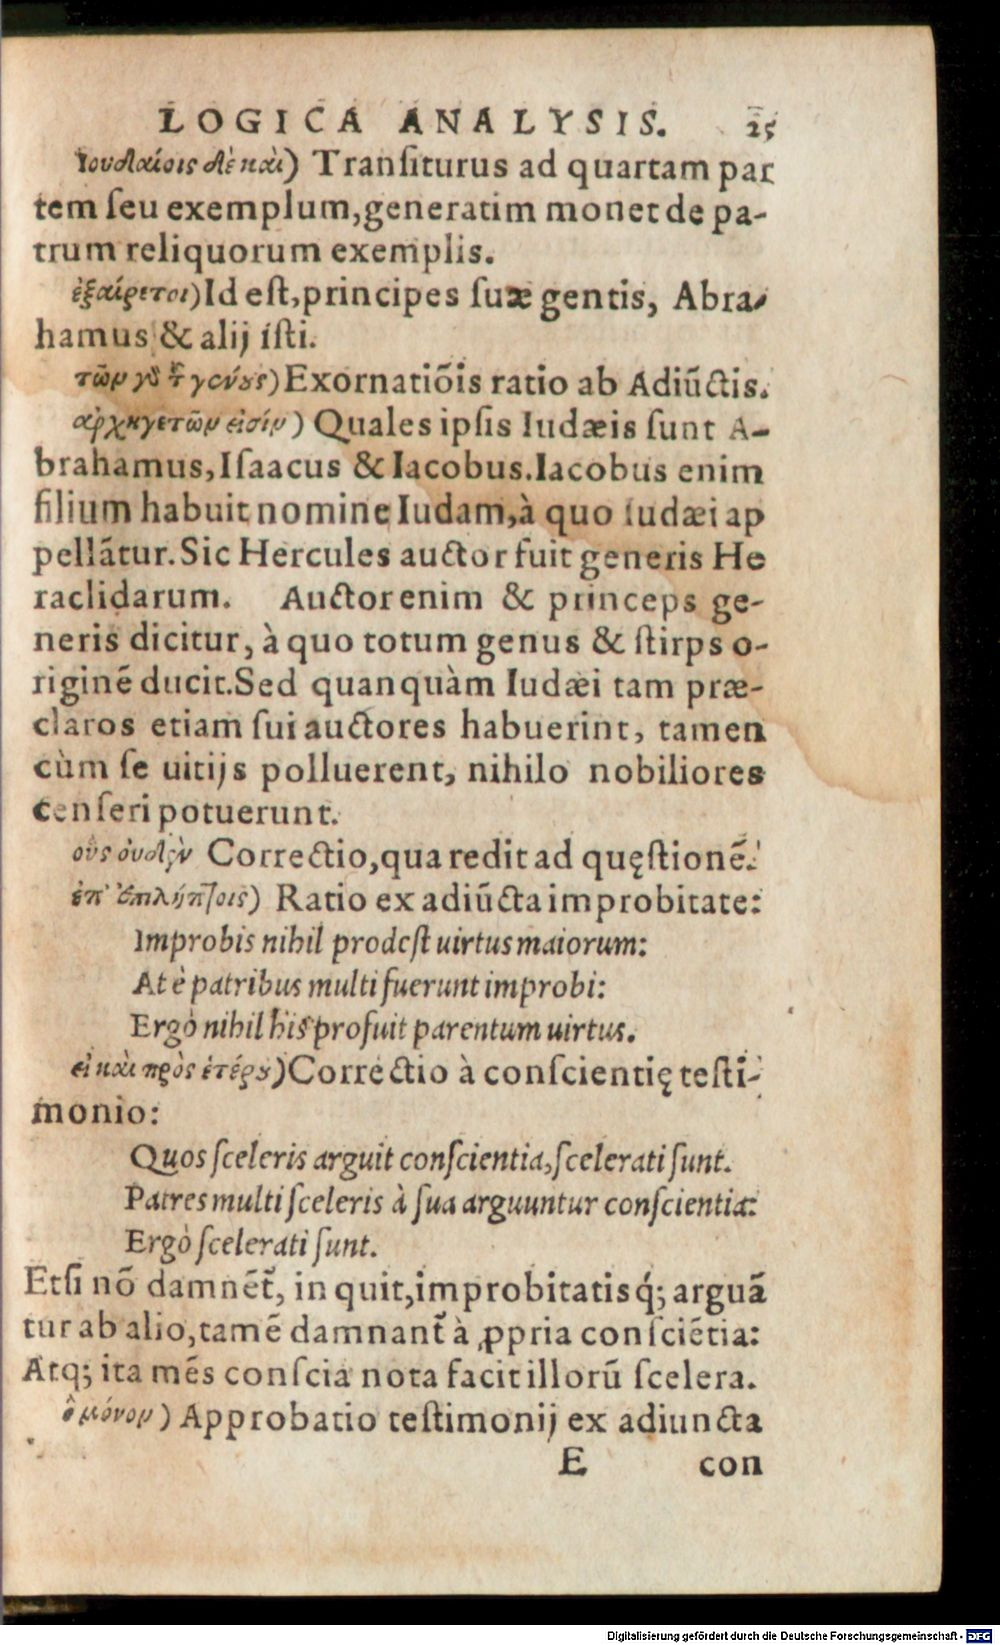 LOGICA ANALYSIS. 25
Ἰουδαίοις δὲ καὶ) Tranſiturus ad quartam par
tem ſeu exemplum,generatim monet de pa-
trum reliquorum exemplis.
ἐξαίρετοι)Id eſt,principes ſuæ gentis, Abra-
hamus & alij iſti.
τῶν γδ τ̃ γένȣς)Exornatiõis ratio ab Adiũctis.
ἀρχηγετῶν εἰσίν) Quales ipſis Iudæis ſunt A-
brahamus,Iſaacus & Iacobus.Iacobus enim
filium habuit nomine Iudam,à quo Iudæi ap
pellãtur.Sic Hercules auctor fuit generis He
raclidarum. Auctor enim & princeps ge-
neris dicitur, à quo totum genus & ſtirps o-
riginẽ ducit.Sed quanquàm Iudæi tam præ-
claros etiam ſui auctores habuerint, tamen
cùm ſe uitijs polluerent, nihilo nobiliores
cenſeri potuerunt.
οὓς οὐδὲν Correctio,qua redit ad quęſtionẽ.
ἐπ' ἐπιλήπτοις) Ratio ex adiũcta improbitate:
Improbis nihil prodeſt uirtus maiorum:
At è patribus multi fuerunt improbi:
Ergò nihil his profuit parentum uirtus.
εἰ καὶ πρὸς ἑτέρȣ)Correctio à conſcientię teſti-
monio:
Quos ſceleris arguit conſcientia,ſcelerati ſunt.
Patres multi ſceleris à ſua arguuntur conſcientia:
Ergò ſcelerati ſunt.
Etſi nõ damnẽt̃, inquit,improbitatisq́; arguã
tur ab alio,tamẽ damnant̃ à ꝓpria conſciẽtia:
Atq; ita mẽs conſcia nota facit illorũ ſcelera.
ὃ μόνον) Approbatio teſtimonij ex adiuncta
E con
Digitalisierung gefördert durch die Deutsche Forschungsgemeinschaft - DFG